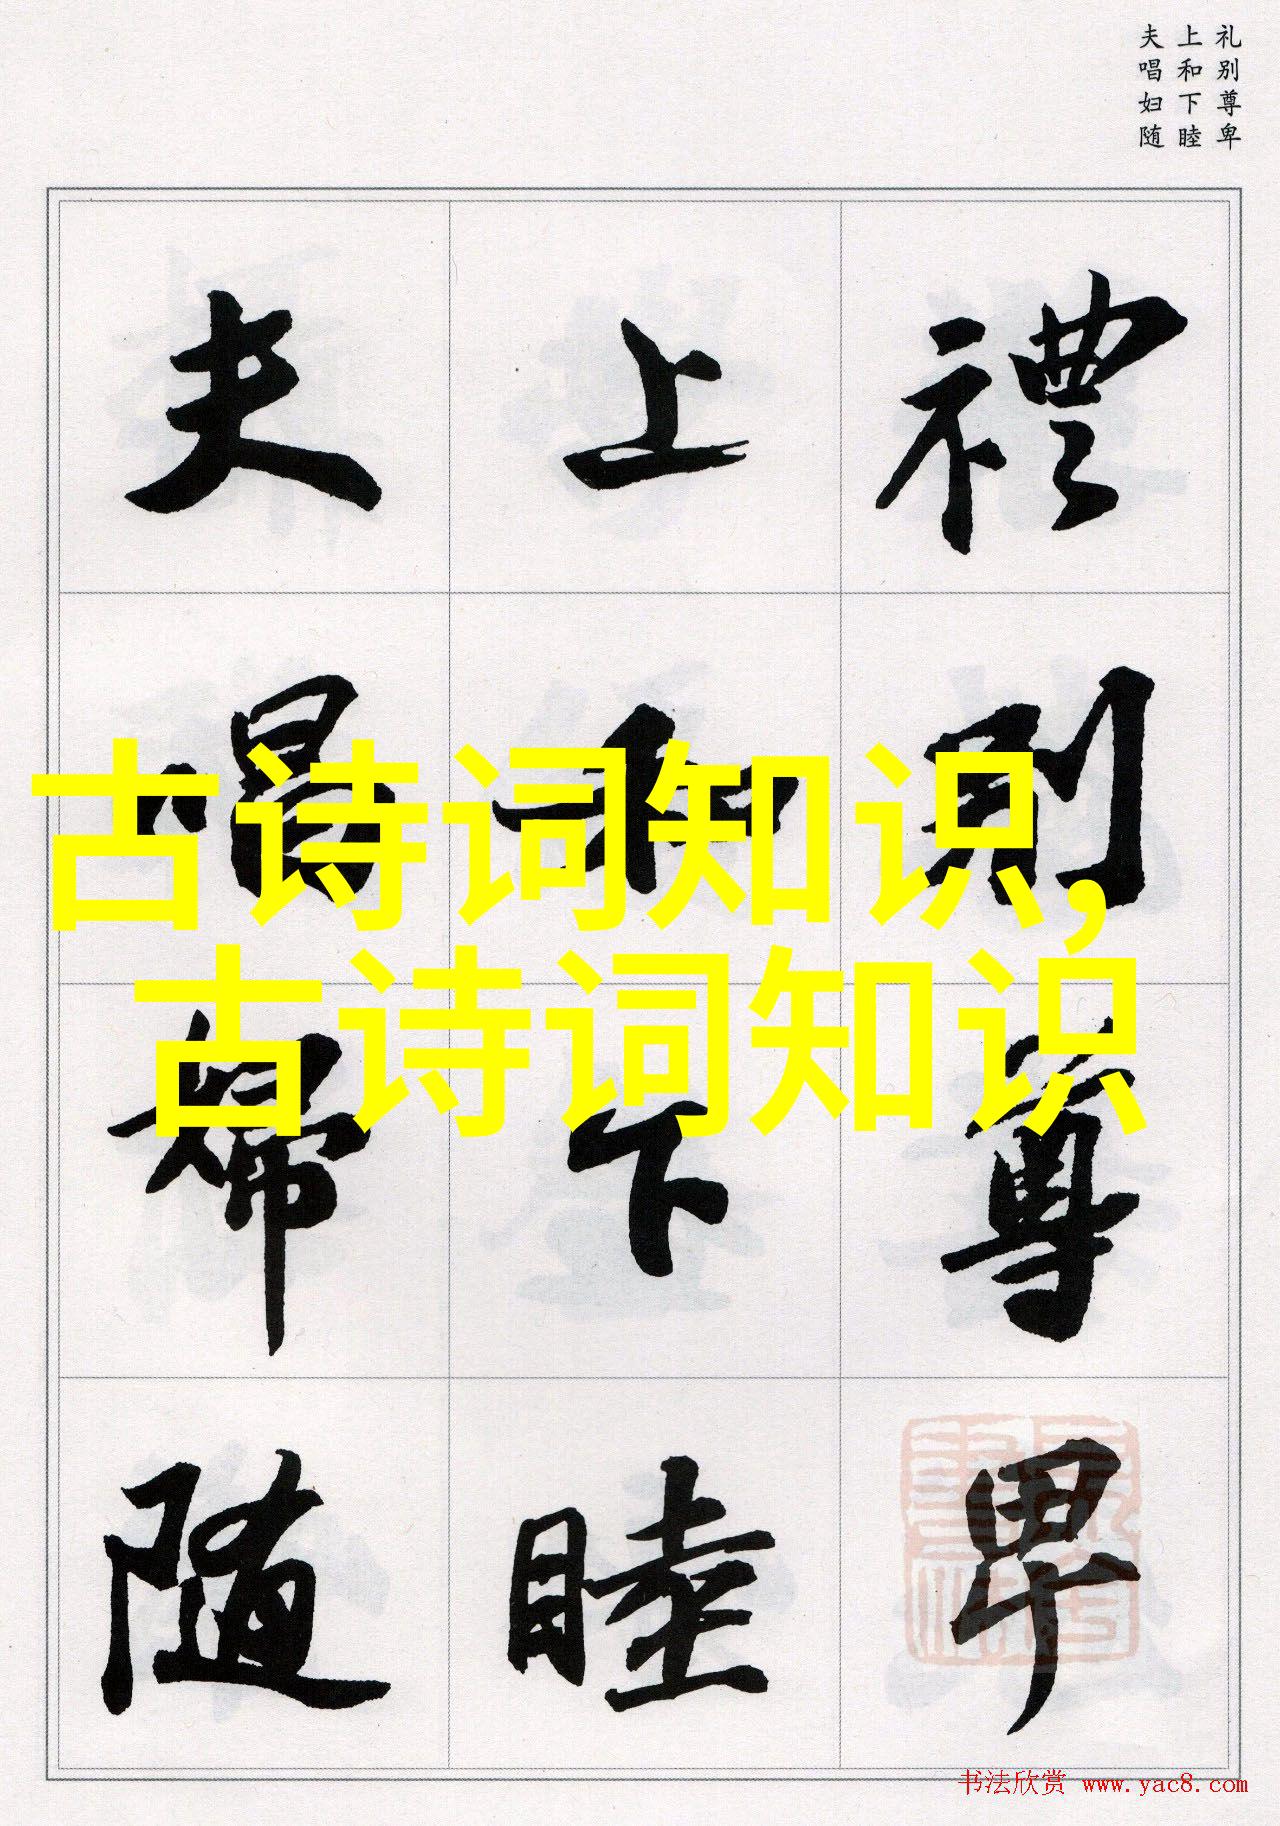 礼别尊卑
上和下睦
夫唱妇随
禮別尊卑
上和下睦
夫唱婦随
古诗词知识,
古诗词知识
书法欣赏 www.yac8.com